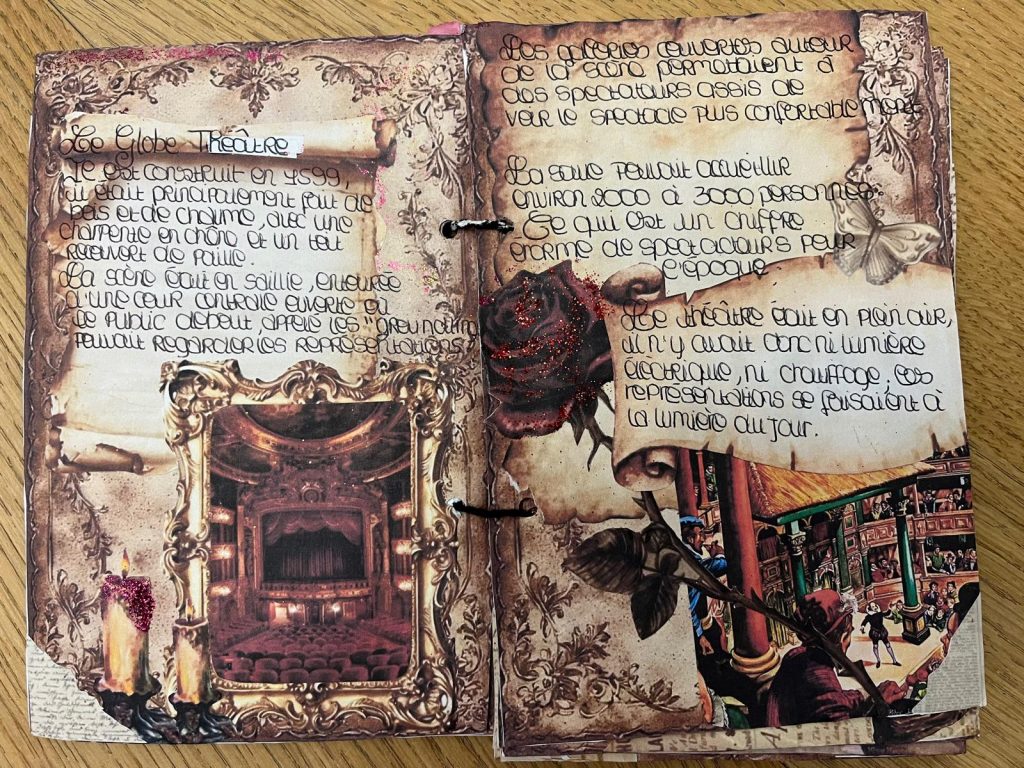 Le Globe Théâtre
Il est construit en 1599,
il était principalement fait de
bois et de chaume, avec une
charpente en chêne et un toit
recouvert de paille.
La scène était en saillie, entourée
d'une cour centrale ouverte où
le public debout, appelé les "
pouvait regarder les représentations.
Les galeries couvertes autour
de la scène permettaient à
des spectateurs assis de
voir le spectacle plus confortablement.
La salle pouvait accueillir
environ 2000 à 3000 personnes.
Ce qui est un chiffre
énorme de spectateurs pour
l'époque.
Le théâtre était en plein air,
il n'y avait donc ni lumière
électrique, ni chauffage, les
représentations se faisaient à
la lumière du jour.